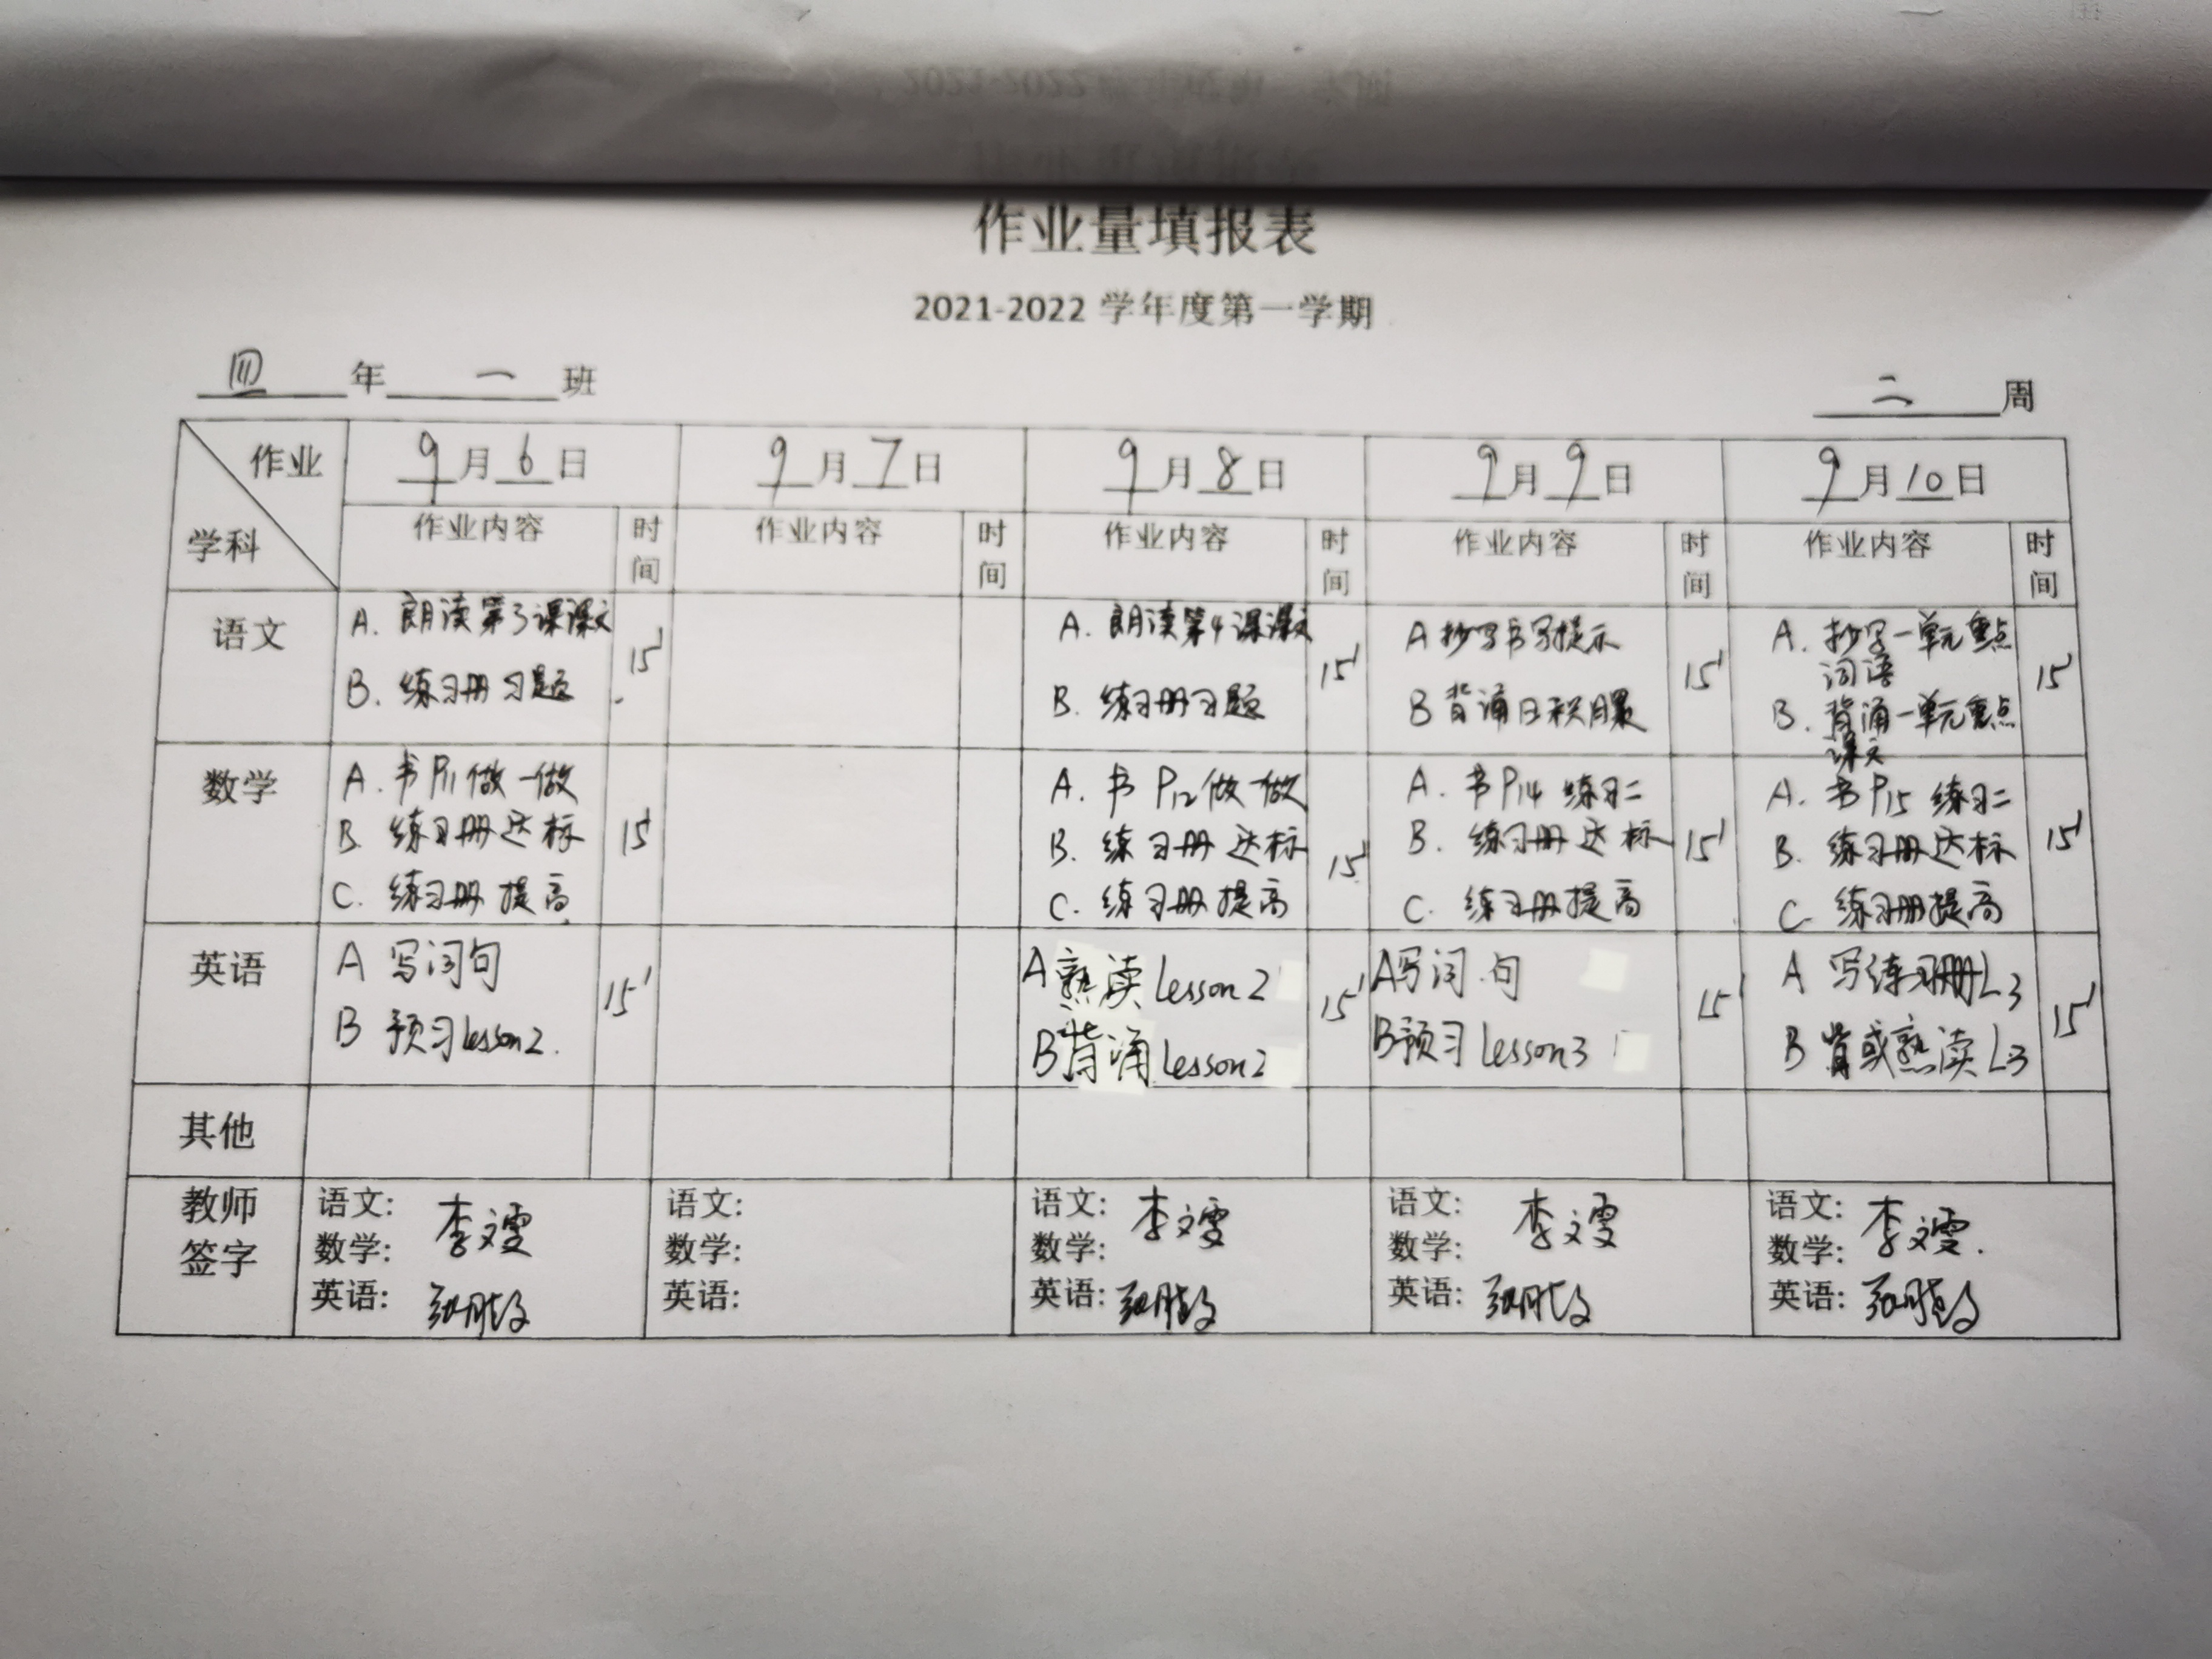 作业量填报表
2021-2022 学年度第一学期
四 年 一 班
二 周
作业
学科
9 月 6 日
9 月 7 日
9 月 8 日
9 月 9 日
9 月 10 日
作业内容 时间
作业内容 时间
作业内容 时间
作业内容 时间
作业内容 时间
语文
A. 朗读第3课课文
B. 练习册习题
15'
A. 朗读第4课课文
B. 练习册习题
15'
A 抄写书写提示
B 背诵日积月累
15'
A. 抄写一单元重点
词语
B. 背诵一单元重点
课文
15'
数学
A. 书P11做一做
B 练习册达标
C. 练习册提高
15'
A. 书 P12做一做
B. 练习册达标
C. 练习册提高
15'
A. 书P14 练习二
B. 练习册达标
C. 练习册提高
15'
A. 书P15 练习二
B. 练习册达标
C 练习册提高
15'
英语
A 写词句
B 预习lesson2.
15'
A 熟读 Lesson 2
B 背诵 Lesson 2
15'
A 写词.句
B 预习 Lesson 3
15'
A 写练习册L3
B 背或熟读 L3
15'
其他
教师
签字
语文:
数学: 李文雯
英语:
语文:
数学:
英语:
语文:
数学: 李文雯
英语:
语文:
数学: 李文雯
英语:
语文:
数学: 李文雯.
英语: